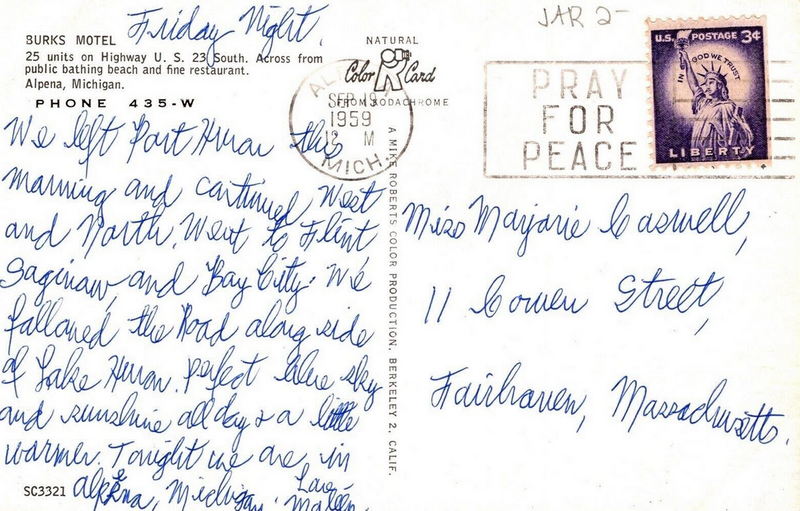 Friday Night.
JAR 2-
BURKS MOTEL
25 units on Highway U. S. 23 South. Across from
public bathing beach and fine restaurant.
Alpena, Michigan.
PHONE 435-W
NATURAL
Color Card
FROM KODACHROME
SEP 19
1959
12 M
MICH.
PRAY
FOR
PEACE
U.S. POSTAGE 3¢
IN GOD WE TRUST
LIBERTY
We left Port Huron this
morning and continued West
and North. Went to Flint
Saginaw, and Bay City. We
followed the Road along side
of Lake Huron. Perfect blue sky
and sunshine all day & a little
warmer. Tonight we are in
Alpena, Michigan.
Love
A MIKE ROBERTS COLOR PRODUCTION. BERKELEY 2, CALIF.
SC3321
Miss Marjorie Caswell,
11 Cowen Street,
Fairhaven, Massachusetts.